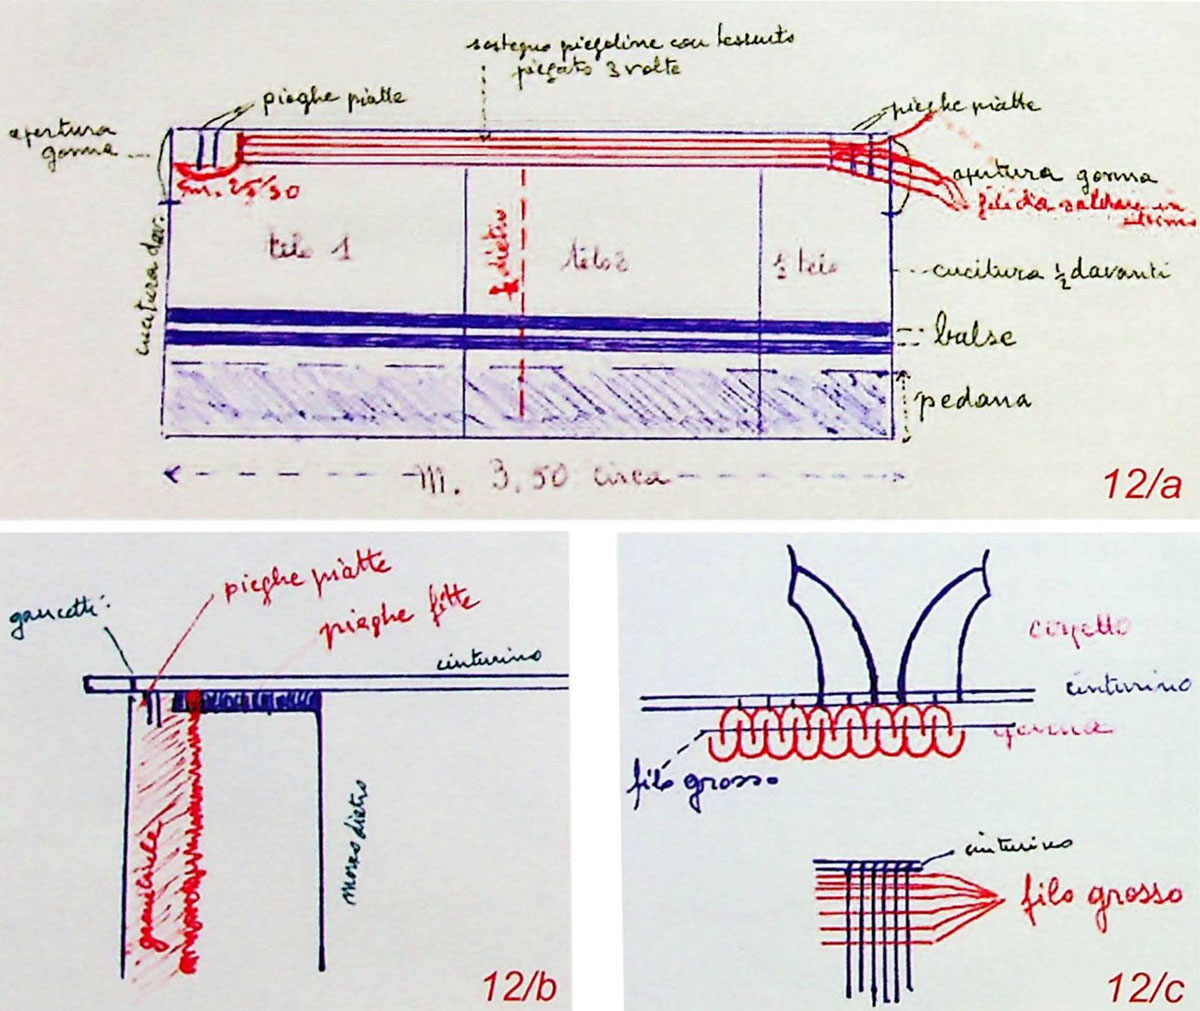 sostegno piegoline con tessuto
piegato 3 volte
pieghe piatte
pieghe piatte
apertura
gonna
cm. 25/30
apertura gonna
fili da saldare in
telo 1
½ dietro
telo 2
½ telo
cucitura dav.
cucitura ½ davanti
balse
pedana
m. 3,50 circa
12/a
gancetti
pieghe piatte
pieghe fitte
cinturino
grembiule
mezzo dietro
12/b
corpetto
cinturino
gonna
filo grosso
cinturino
filo grosso
12/c